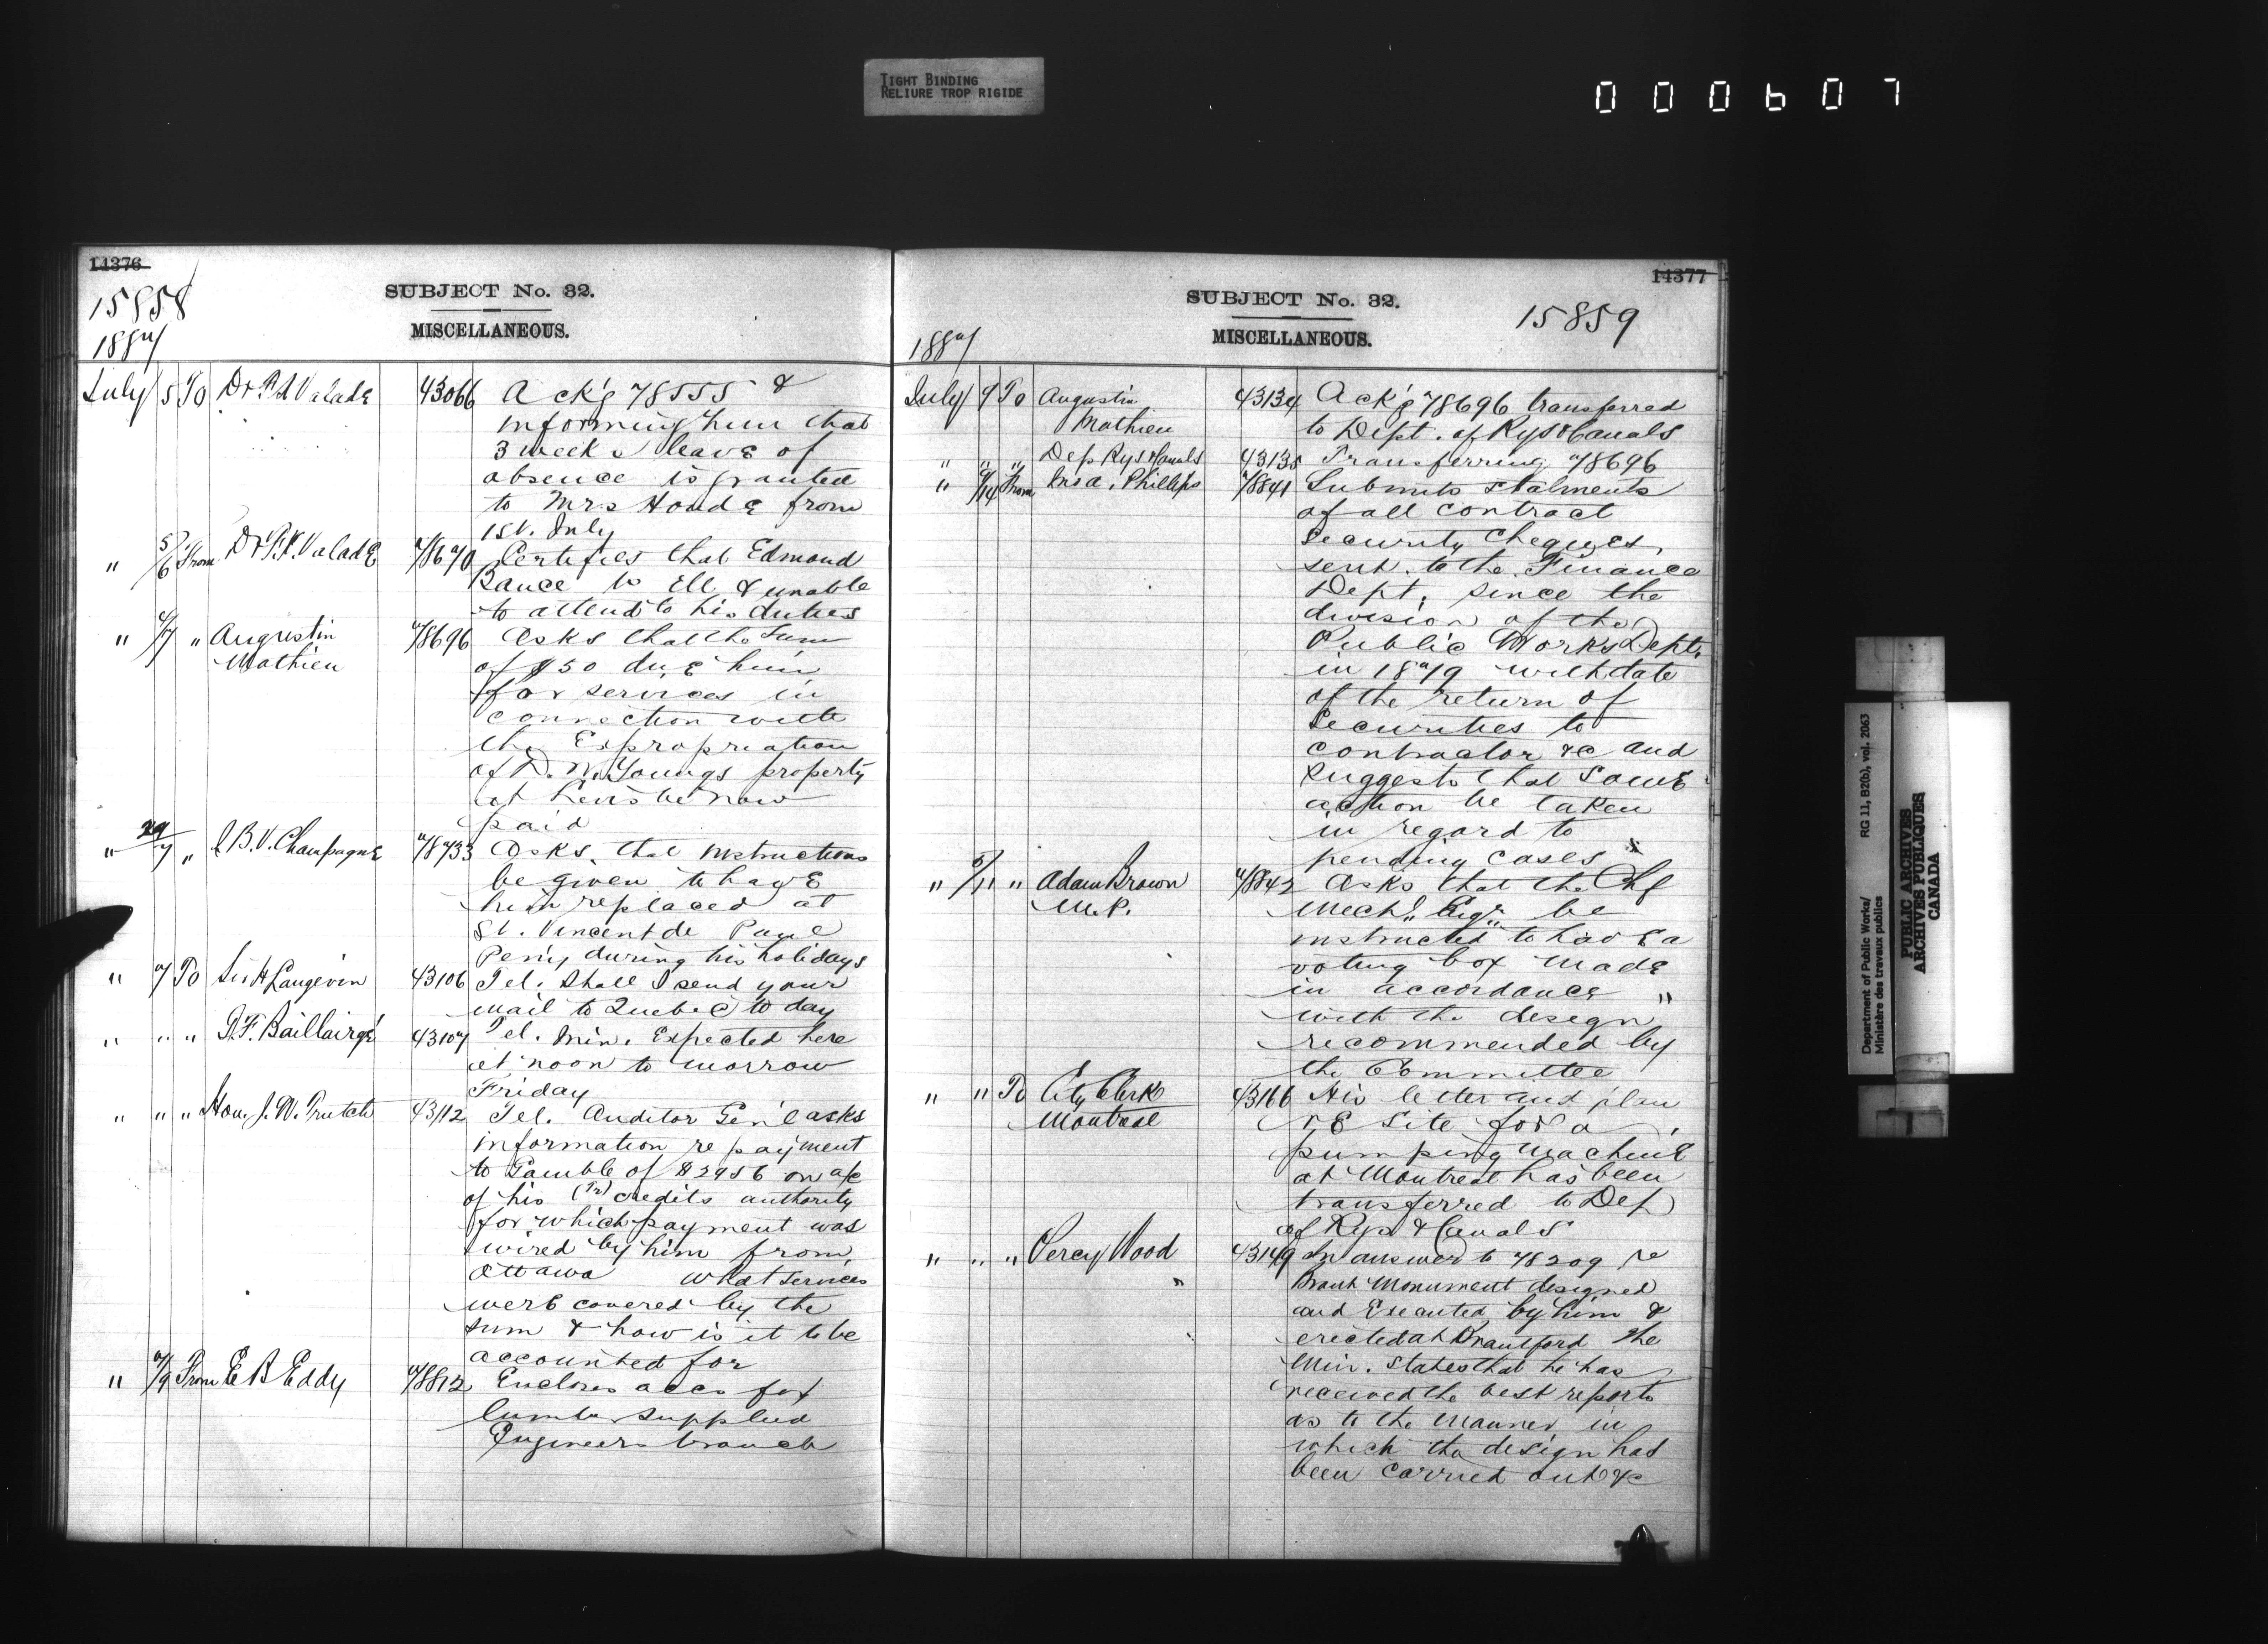 TIGHT BINDING
RELIURE TROP RIGIDE
000607
14376
15858
SUBJECT No. 32.
MISCELLANEOUS.
1887
July 5 To Dr F. X. Valade 43066 Ack'g 78555 &
informing him that
3 weeks leave of
absence is granted
to Mrs Houde from
1st. July
" 5/6 From Dr F. X. Valade 78670 Certifies that Edmond
Rance is ill & unable
to attend to his duties
" 4/7 " Augustin 78696 Asks that the sum
Mathieu of $50 due him
for services in
connection with
the Expropriation
of D. W. Youngs property
at Levis be now
paid
" 29/7 " J. B. V. Champagne 78733 Asks that instructions
be given to have
him replaced at
St. Vincent de Paul
Peny during his holidays
" 7 To Sir H Langevin 43106 Tel. Shall I send your
mail to Quebec to day
" " " G. F. Baillairgé 43107 Tel. Min. Expected here
at noon to morrow
Friday
" " " Hon. J. W. Trutch 43112 Tel. Auditor Gen'l asks
information re payment
to Gamble of $2956 on a/c
of his (Tr) credits authority
for which payment was
wired by him from
Ottawa what services
were covered by the
sum & how is it to be
accounted for
" 7/9 From E B Eddy 78812 Encloses accs for
lumber supplied
Engineers branch
14377
SUBJECT No. 32.
15859
MISCELLANEOUS.
1887
July 9 To Augustin 43134 Ack'g 78696 transferred
Mathieu to Dept. of Rys & Canals
" " " Dep Rys & Canals 43135 Transferring 78696
" 9/14 From Phillips 78841 Submits statments
of all contract
Security Cheques,
sent to the Finance
Dept. since the
division of the
Public Works Dept.
in 1879 with date
of the return of
Securities to
contractor &c and
suggests that some
action be taken
in regard to
pending cases
" 5/11 " Adam Brown 78842 Asks that the Chf
M.P. Mech'l Eng'r be
instructed to have a
voting box made
in accordance "
with the design
recommended by
the Committee
" " To City Clerk 43166 His letter and plan
Montreal re Site for a
pumping machine
at Montreal has been
transferred to Dep
of Rys & Canals
" " " Percy Wood 43149 In answer to 78209 re
Brant Monument designed
and Executed by him &
erected at Brantford the
Min. states that he has
received the best reports
as to the manner in
which the design had
been carried out &c
Department of Public Works/ RG 11, B2(b), vol. 2063
Ministère des travaux publics
PUBLIC ARCHIVES
ARCHIVES PUBLIQUES
CANADA